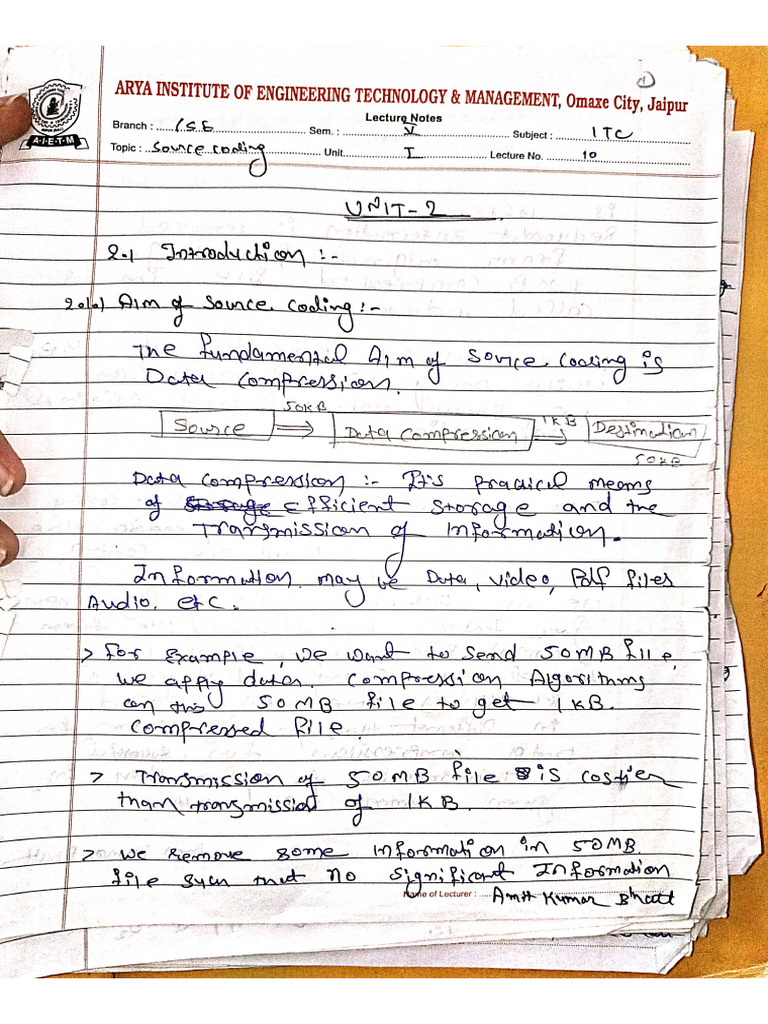 ①
ARYA INSTITUTE OF ENGINEERING TECHNOLOGY & MANAGEMENT, Omaxe City, Jaipur
Lecture Notes
Branch : CSE Sem. : V Subject : ITC
Topic : Source coding Unit I Lecture No. 10
A·I·E·T·M
UNIT-2
2.1 Introduction :-
Aim of Source Coding :-
The fundamental Aim of Source Coding is
Data Compression.
50KB 1KB
Source ⇒ Data Compression ⇒ Destination
50KB
Data Compression :- It's Practical means
of Storage Efficient Storage and the
Transmission of Information.
Information may be Data, video, Pdf files
Audio, etc.
> For Example, we want to send 50MB file,
we apply data Compression Algorithms
on this 50MB file to get 1KB.
Compressed file.
> Transmission of 50MB file is costier
than transmission of 1KB.
> We remove some information in 50MB
file such that no significant Information
Name of Lecturer : Amit Kumar Bhatt